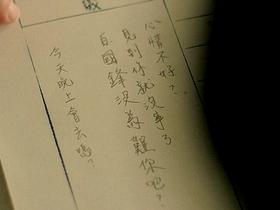 心情不好?
見到你就沒事了
白國鋒沒為難你吧?
今天晚上會去嗎?